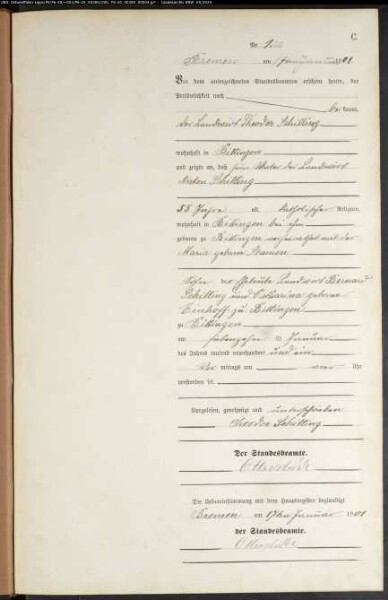 C.
Nr.
Bremen am Januar 1901
Vor dem unterzeichneten Standesbeamten erschien heute, der
Persönlichkeit nach
be kannt,
der Landwirt Theodor Schilling
wohnhaft in Bittingen
und zeigte an, daß sein Vater der Landwirt
Anton Schilling
55 Jahre alt, katholischer Religion,
wohnhaft in Bittingen bei ihm
geboren zu Bittingen verheiratet mit der
Maria geborene
Sohn der Eheleute Landwirt Bernard
Schilling und Catharina geborene
Einhoff zu Bittingen
zu Bittingen
am siebenzehn ten Januar
des Jahres tausend neunhundert und ein
Vor mittags um vier Uhr
verstorben sei.
Vorgelesen, genehmigt und unterschrieben
Theodor Schilling
Der Standesbeamte.
Die Uebereinstimmung mit dem Hauptregister beglaubigt
Bremen am 17ten Januar 1901
der Standesbeamte.